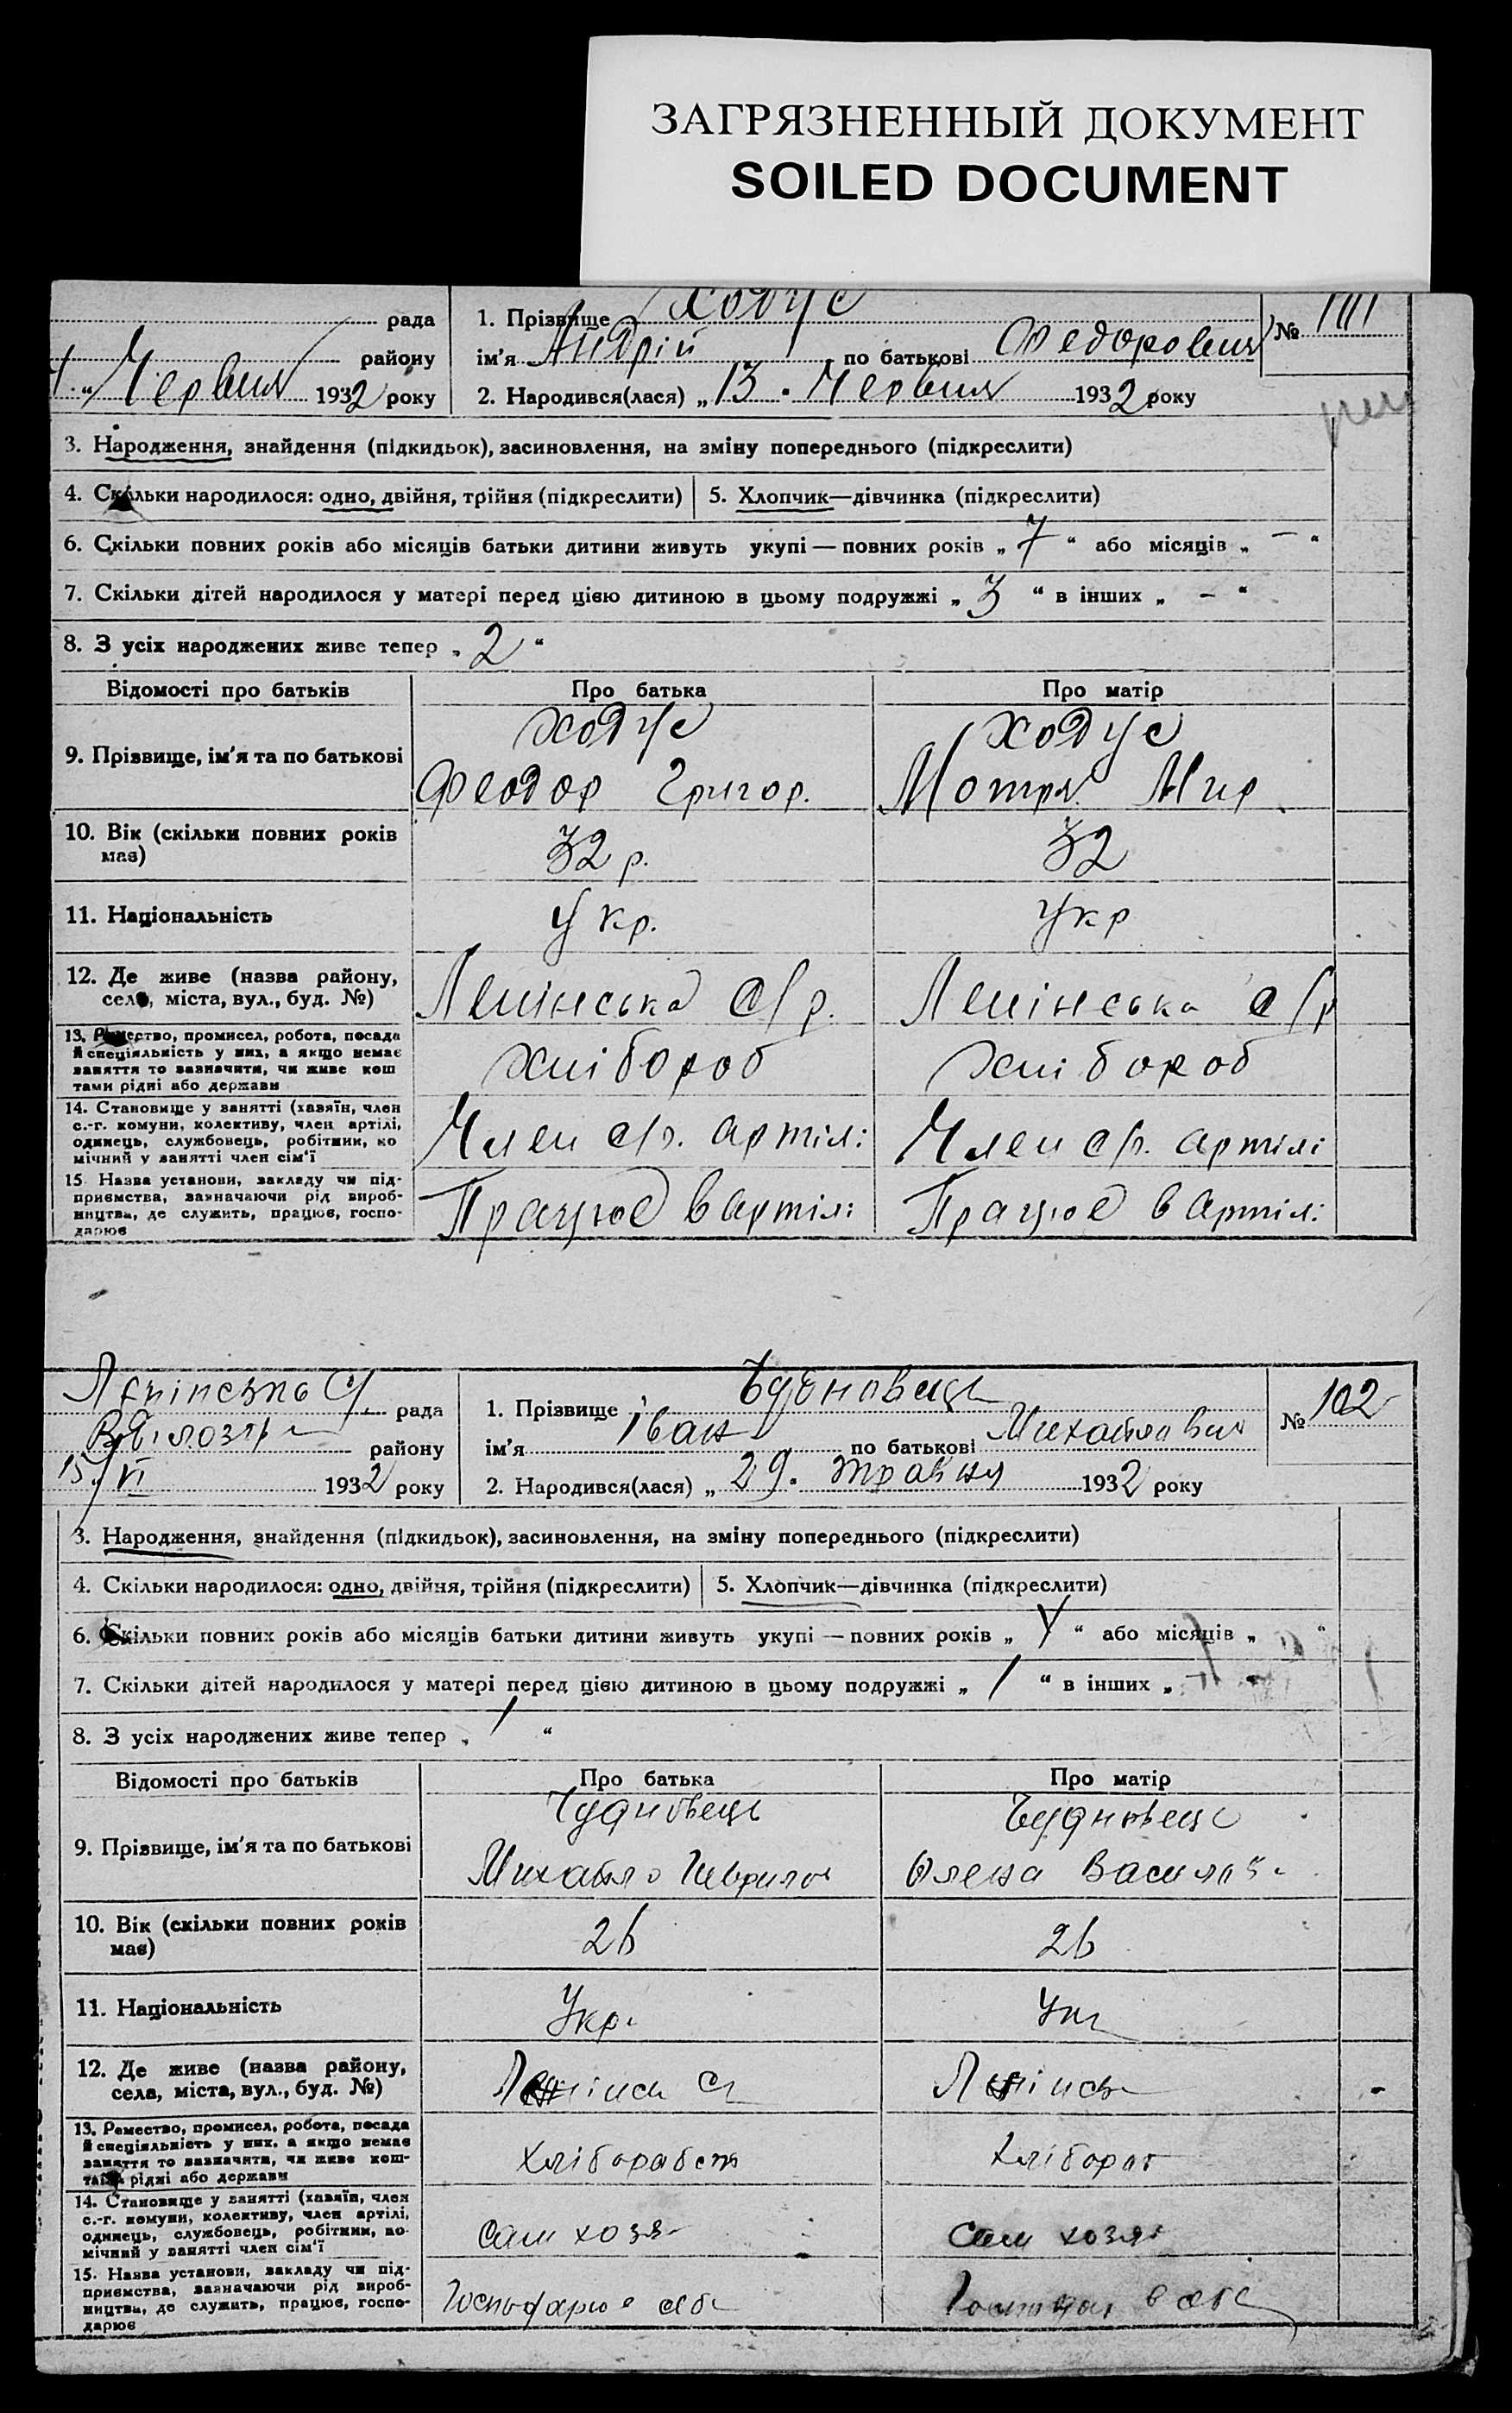 ЗАГРЯЗНЕННЫЙ ДОКУМЕНТ
SOILED DOCUMENT
рада
1. Прізвище Ходус
№
району
ім'я Андрій по батькові Федорович
Червня 1932 року
2. Народився(лася) „ 13 . Червня 1932 року
3. Народження, знайдення (підкидьок), засиновлення, на зміну попереднього (підкреслити)
4. Скільки народилося: одно, двійня, трійня (підкреслити) 5. Хлопчик—дівчинка (підкреслити)
6. Скільки повних років або місяців батьки дитини живуть укупі — повних років „ 7 “ або місяців „ — “
7. Скільки дітей народилося у матері перед цією дитиною в цьому подружжі „ 3 “ в інших „ — “
8. З усіх народжених живе тепер „ 2 “
Відомості про батьків Про батька Про матір
9. Прізвище, ім'я та по батькові
Ходус Ходус
Феодор Григор. Мотря Мир
10. Вік (скільки повних років має) 32 р. 32
11. Національність Укр. Укр
12. Де живе (назва району, села, міста, вул., буд. №) Ленінська с/р. Ленінська с/р
13. Ремество, промисел, робота, посада й спеціяльність у них, а якщо немає заняття то зазначити, чи живе кош тами рідні або держави
Хлібороб Хлібороб
14. Становище у занятті (хазяїн, член с.-г. комуни, колективу, член артілі, одинець, службовець, робітник, по мічний у занятті член сім'ї
Член с/г. артілі Член с/г. артілі
15 Назва установи, закладу чи під- приємства, зазначаючи рід вироб- ництва, де служить, працює, госпо- дарює
Працює в артілі Працює в артілі
рада
1. Прізвище Чудновець
№ 102
району
ім'я Іван по батькові Михайлович
15/VI 1932 року
2. Народився(лася) „ 29 . травня 1932 року
3. Народження, знайдення (підкидьок), засиновлення, на зміну попереднього (підкреслити)
4. Скільки народилося: одно, двійня, трійня (підкреслити) 5. Хлопчик—дівчинка (підкреслити)
6. Скільки повних років або місяців батьки дитини живуть укупі — повних років „ “ або місяців „ “
7. Скільки дітей народилося у матері перед цією дитиною в цьому подружжі „ 1 “ в інших „
8. З усіх народжених живе тепер „ 1 “
Відомості про батьків Про батька Про матір
9. Прізвище, ім'я та по батькові
Чудновець Чудновець
Михайло Гаврилов Олена Василів
10. Вік (скільки повних років має) 26 26
11. Національність Укр. Укр
12. Де живе (назва району, села, міста, вул., буд. №)
13. Ремество, промисел, робота, посада й спеціяльність у них, а якщо немає заняття то зазначити, чи живе кош- тами рідні або держави
Хлібороб
14. Становище у занятті (хазяїн, член с.-г. комуни, колективу, член артілі, одинець, службовець, робітник, по- мічний у занятті член сім'ї
сам хозя сам хозя
15. Назва установи, закладу чи під- приємства, зазначаючи рід вироб- ництва, де служить, працює, госпо- дарює
Господарює